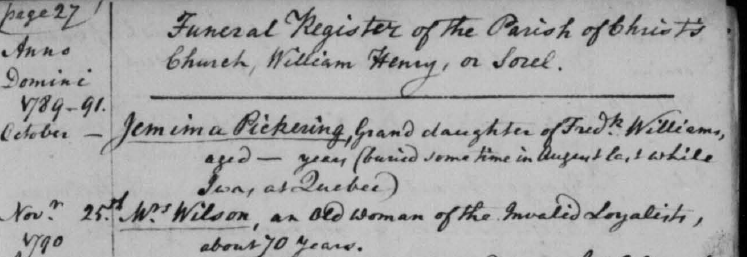 page 27
Anno
Domini
1789-91.
Funeral Register of the Parish of Christ's
Church, William Henry, or Sorel.
October — Jemima Pickering, Grand daughter of Fredk. Williams,
aged — years, (buried some time in August last while
I was at Quebec)
Novr. 25.th Mrs Wilson, an old woman of the Invalid Loyalists,
1790 about 70 years.